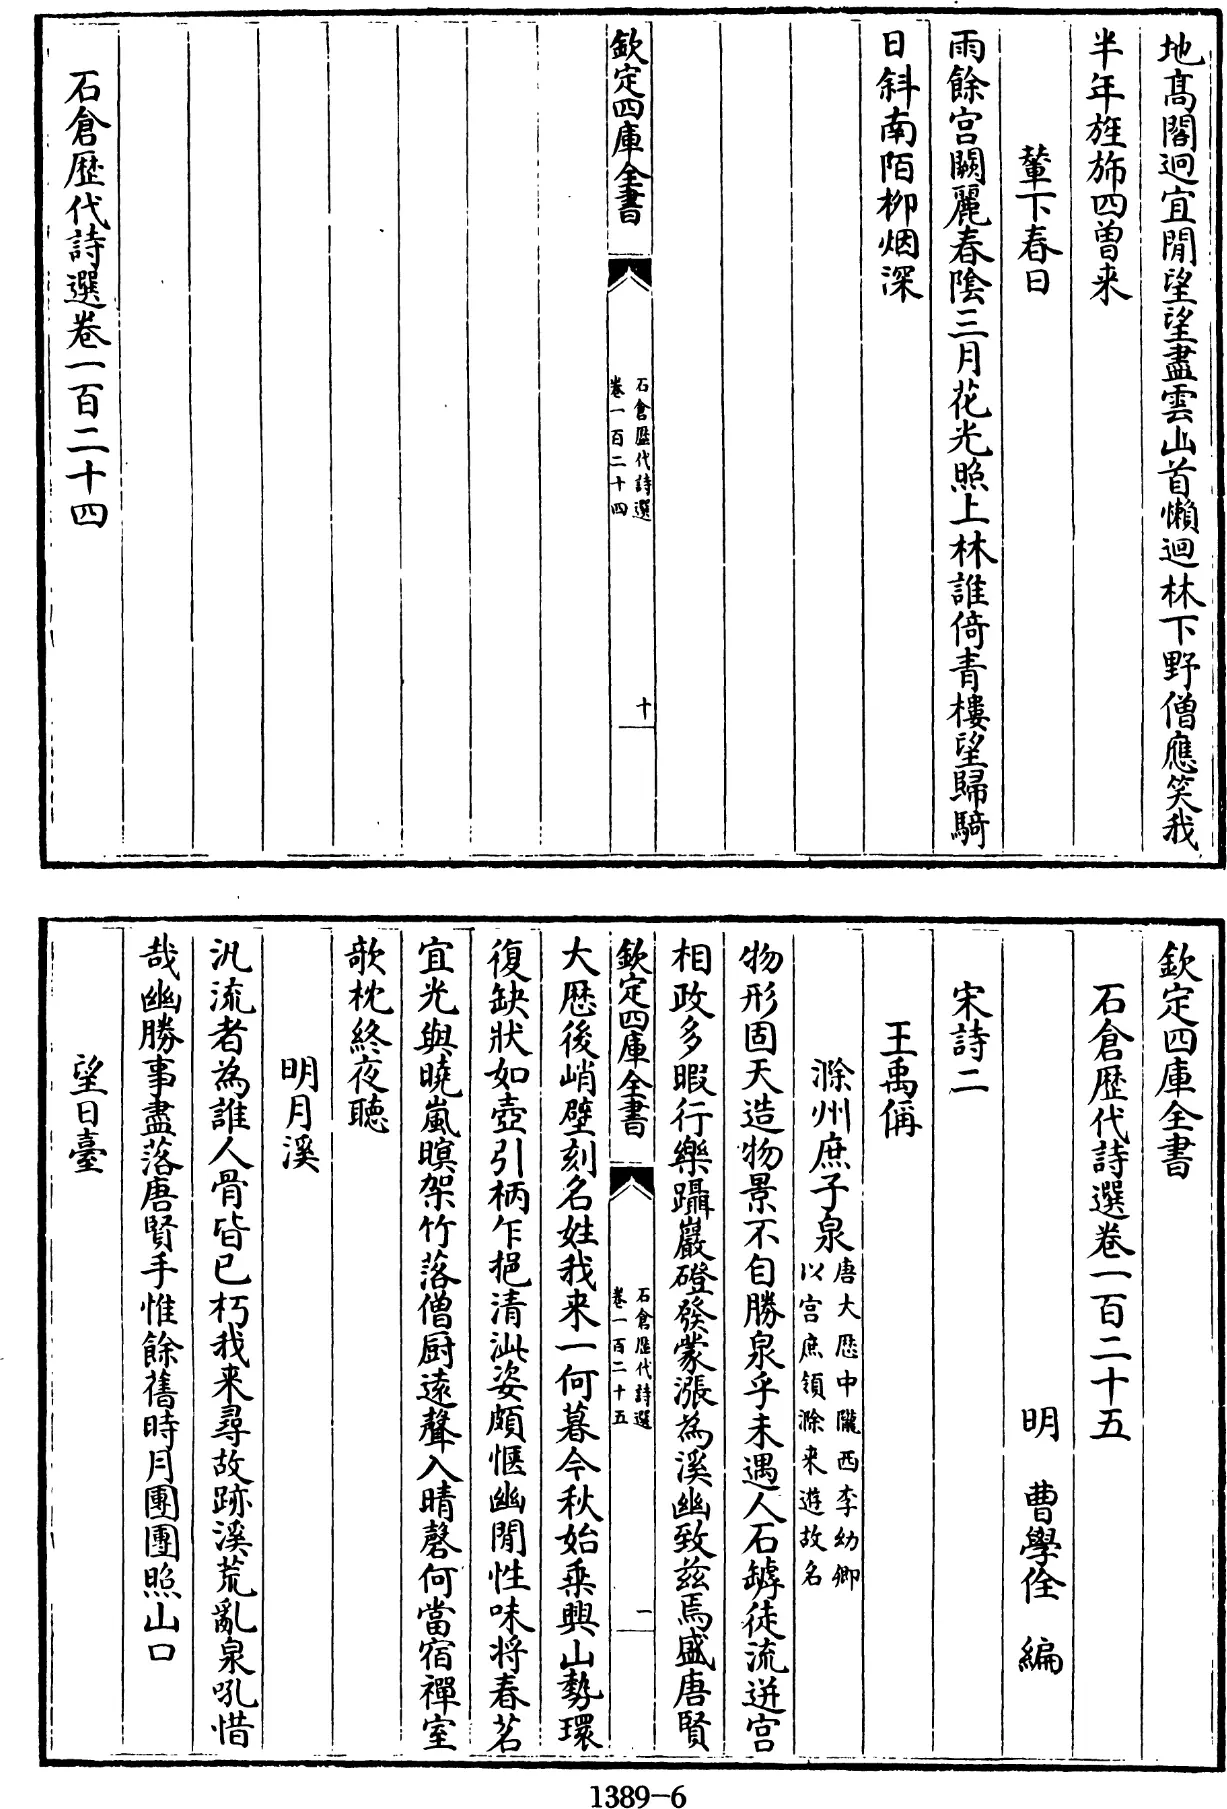 地髙閣迥宜閒望望盡雲山首懶迴林下野僧應笑我
半年旌斾四曽来
輦下春日
雨餘宫闕麗春陰三月花光照上林誰倚青樓望歸騎
日斜南陌柳烟深
欽定四庫全書
石倉歴代詩選
卷一百二十四
十
石倉歴代詩選卷一百二十四
欽定四庫全書
石倉歴代詩選卷一百二十五
明 曹學佺 編
宋詩二
王禹偁
滁州庶子泉
唐大厯中隴西李幼卿
以宫庶領滁来遊故名
物形固天造物景不自勝泉乎未遇人石罅徒流迸宫
相政多暇行樂躡巖磴發蒙漲為溪幽致兹焉盛唐賢
欽定四庫全書
石倉歴代詩選
卷一百二十五
一
大厯後峭壁刻名姓我来一何暮今秋始乗興山勢環
復缺狀如壺引柄乍挹清泚姿頗愜幽閒性味将春茗
宜光與曉嵐暝架竹落僧厨逺聲入晴磬何當宿禪室
欹枕終夜聽
明月溪
汎流者為誰人骨皆已朽我来尋故跡溪荒亂泉吼惜
哉幽勝事盡落唐賢手惟餘舊時月團團照山口
望日臺
1389-6